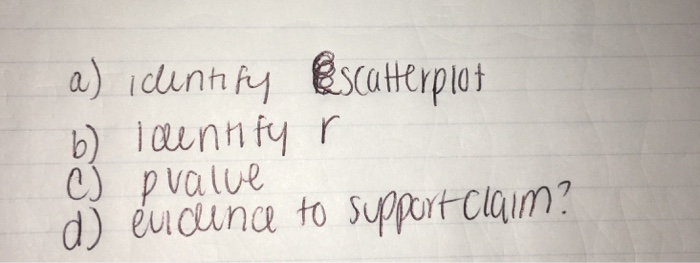 a) identify scatterplot
b) identify r
c) pvalue
d) evidence to support claim?